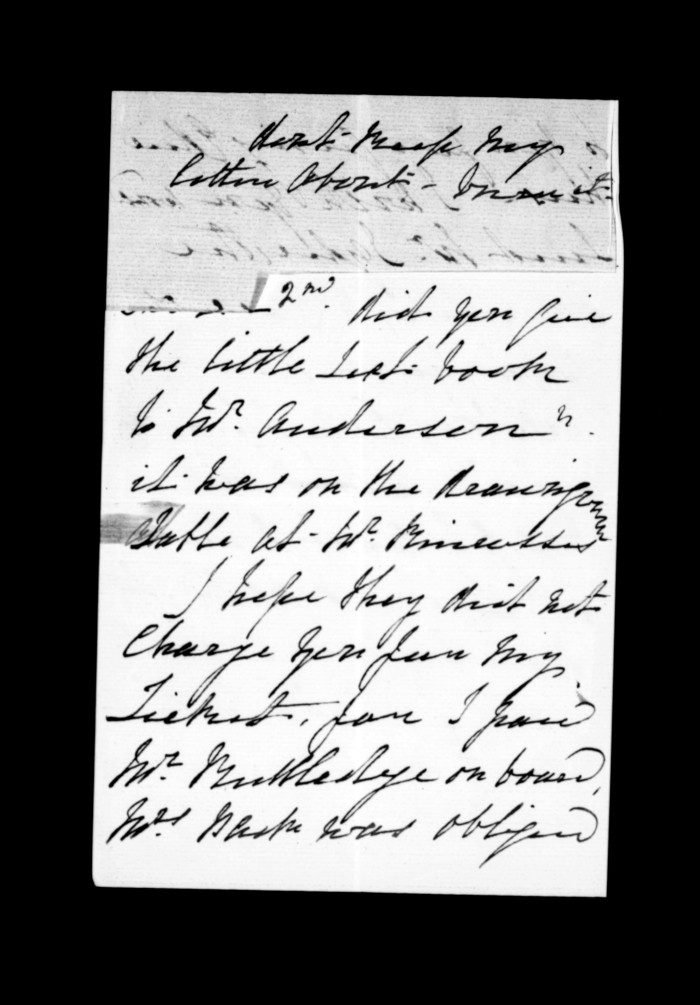 dont keep my
letter about - burn it
2nd. did you give
the little Text book
to Mr. Anderson
it was on the drawingroom
table at Mr.
I hope they did not
Charge you for my
Ticket, for I paid
Mr. Ruttledge on board,
Mrs was obliged